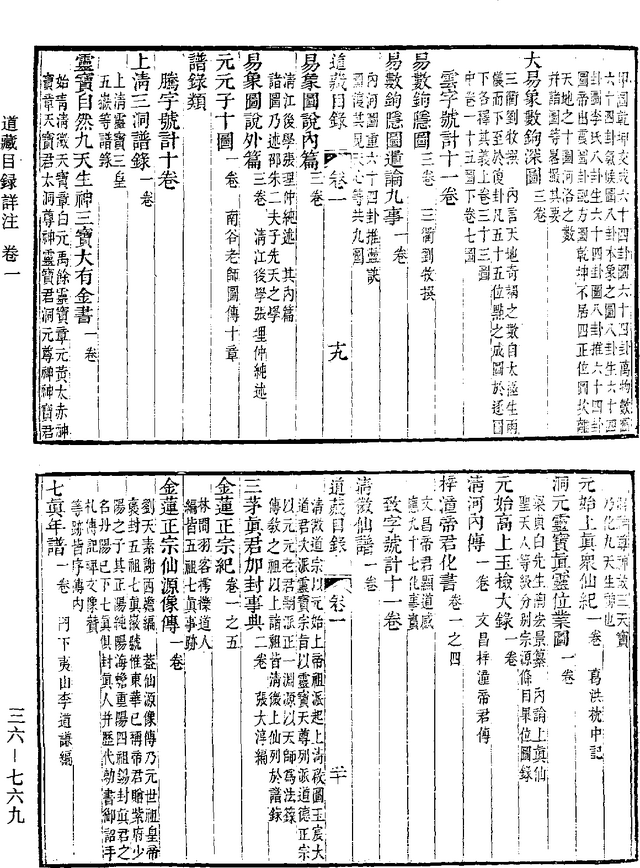 甲圖乾坤交成六十四卦圖六十四卦萬物數圖
六十四卦氣候圖八卦本象之圖八卦生六十四
卦圖李氏八卦生六十四卦圖八卦推六十四卦
天地之十圖河洛之數
大易象數鉤深圖 三卷
三衢劉牧撰 內言天地奇耦之數自太極生兩
儀而下至於復卦凡五十五位點之成圖於逐圖
下各釋其義上卷三十三圖
中卷一十五圖下卷七圖
雲字號計十一卷
易數鉤隱圖 三卷 三衢劉牧撰
易數鉤隱圖遺論九事 一卷
內河圖重六十四卦推盪訣
復見天心等共九圖
道藏目錄 卷一 十九
易象圖說內篇 三卷
清江後學張理仲純述 其內篇
諸圖乃述邵朱二夫子先天之學
易象圖說外篇 三卷 清江後學張理仲純述
元元子十圖 一卷 南谷老師圖傳十章
譜錄類
騰字號計十卷
上清三洞譜錄 一卷
上清靈寶三皇
五嶽等譜錄
靈寶自然九天生神三寶大有金書 一卷
始青清微天寶章白元禹餘靈寶章元黃太赤神
寶章天寶君太洞尊神靈寶君洞元尊神神寶君
道藏目錄詳注 卷一
乃化九天生炁也
元始上眞眾仙紀 一卷 葛洪枕中記
洞元靈寶眞靈位業圖 一卷
梁貞白先生陶宏景纂 內論上眞仙
聖天人等級分別宗源條目果位圖錄
元始高上玉檢大錄 一卷
清河內傳 一卷 文昌梓潼帝君傳
梓潼帝君化書 卷一之四
文昌帝君顯道感
應九十七化事實
致字號計十一卷
清微仙譜 一卷
道藏目錄 卷一 二十
清微道宗以元始上帝祖派起上清啟圖玉宸大
道君大派靈寶宗旨以靈寶天尊列派道德正宗
以元元老君嗣派正一淵源以天師爲法錄
傳教之祖以上諸祖皆清微上仙列於譜錄
三茅眞君加封事典 二卷 張大淳編
金蓮正宗紀 卷一之五
林間羽客樗櫟道人
編皆五祖七眞事跡
金蓮正宗仙源像傳 一卷
劉天素謝西蟾編 蓋仙源像傳乃元世祖皇帝
褒封五祖七眞徽號惟東華已稱帝君贈紫府少
陽之子其正陽純陽海蟾重陽四祖錫封眞君之
名丹陽已下七眞俱封眞人并歷代勅書御詔手
札傳記碑文像贊
等跡皆序傳內
七眞年譜 一卷 門下夷山李道謙編
三六—七六九